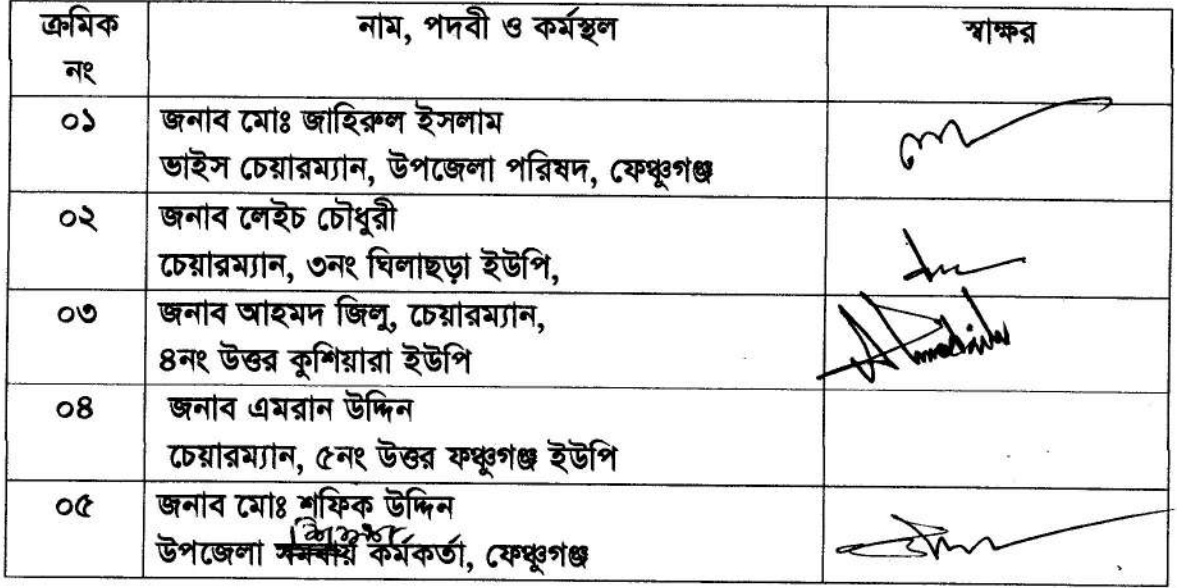 ক্রমিক নং
নাম, পদবী ও কর্মস্থল
স্বাক্ষর
০১
জনাব মোঃ জাহিরুল ইসলাম
ভাইস চেয়ারম্যান, উপজেলা পরিষদ, ফেঞ্চুগঞ্জ
০২
জনাব লেইচ চৌধুরী
চেয়ারম্যান, ৩নং ঘিলাছড়া ইউপি,
০৩
জনাব আহমদ জিলু, চেয়ারম্যান,
৪নং উত্তর কুশিয়ারা ইউপি
০৪
জনাব এমরান উদ্দিন
চেয়ারম্যান, ৫নং উত্তর ফঞ্চুগঞ্জ ইউপি
০৫
জনাব মোঃ শফিক উদ্দিন
উপজেলা সমবায় কর্মকর্তা, ফেঞ্চুগঞ্জ